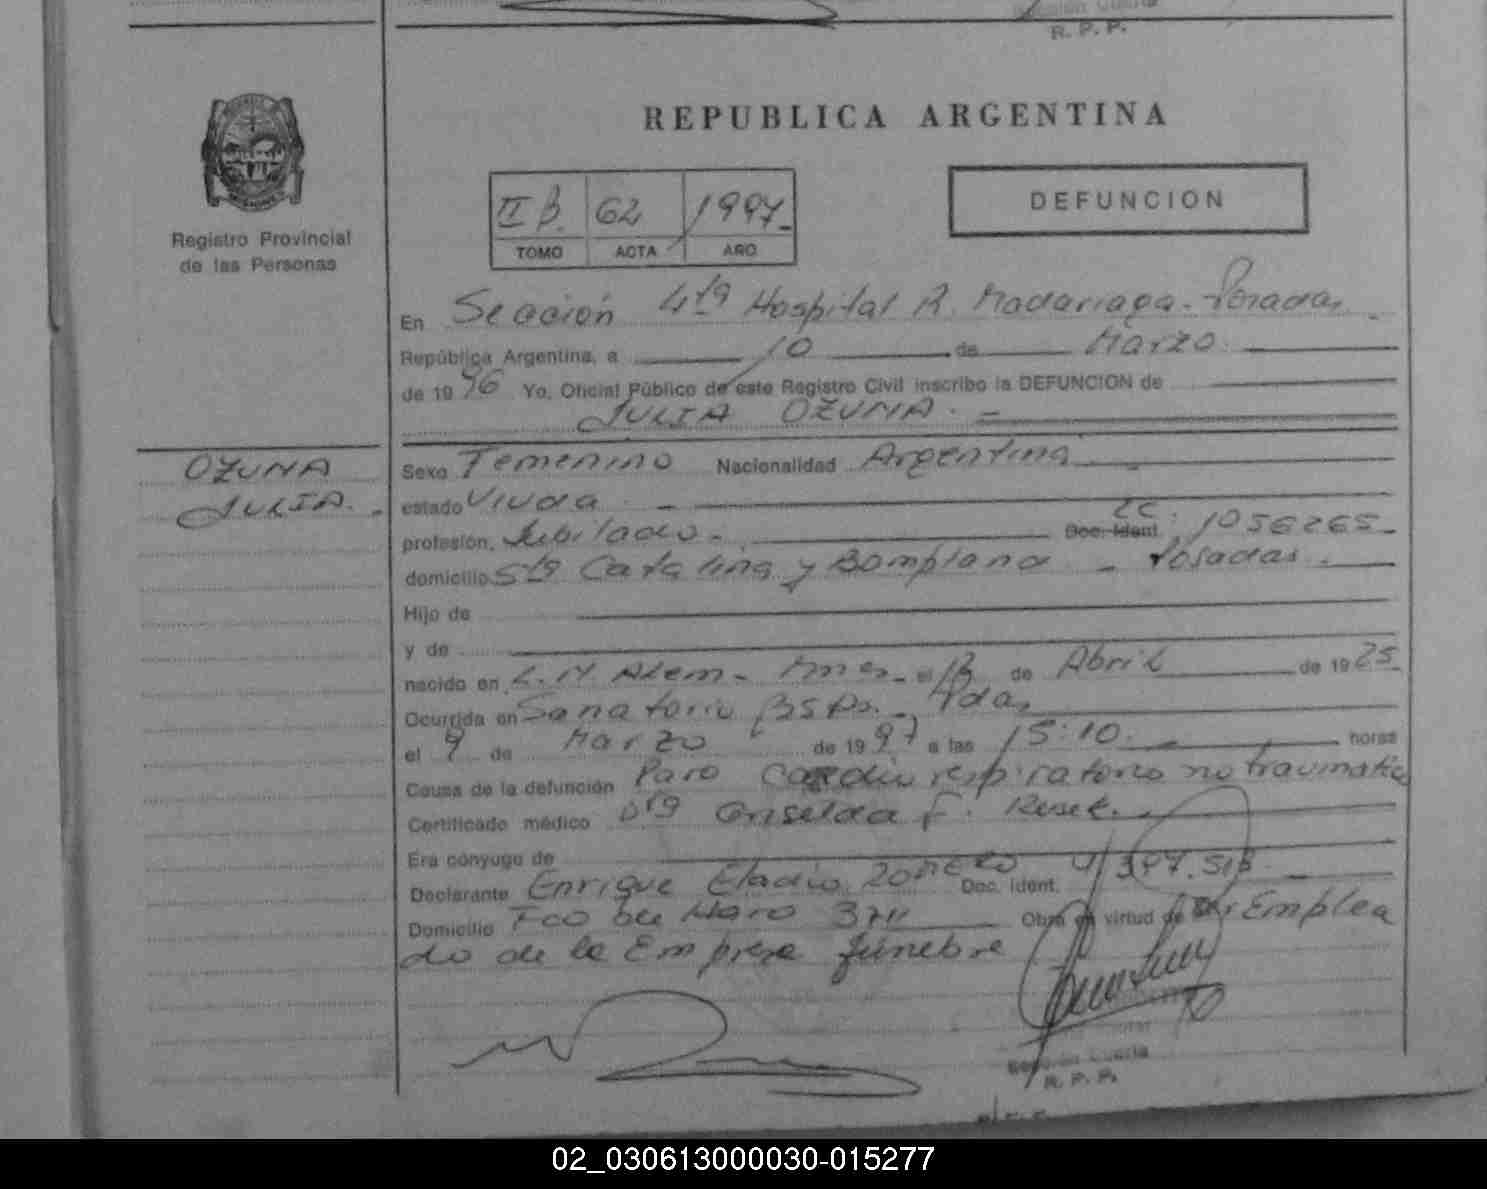 Sección Cuarta
R. P. P.
REPUBLICA ARGENTINA
II B. 62 1997
TOMO ACTA AÑO
DEFUNCION
Registro Provincial
de las Personas
En Sección 4ta Hospital R. Madariaga - Posadas.
República Argentina, a 10 de Marzo
de 19 96 Yo, Oficial Público de este Registro Civil inscribo la DEFUNCION de
JULIA OZUNA. -
OZUNA
JULIA. -
Sexo Femenino Nacionalidad Argentina
estado Viuda -
profesión, Jubilado - Doc. Ident. LC. 1056265-
domicilio Sta Catalina y Bompland - Posadas.
Hijo de
y de
nacido en L. N. Alem - Mnes - el 13 de Abril de 19 25
Ocurrida en Sanatorio Bs As. - Pdas
el 9 de Marzo de 19 97 a las 15:10. horas
Causa de la defunción Paro Cardio respiratorio no traumatic
Certificado médico Dra Griselda F.
Era cónyuge de
Declarante Enrique Eladio Romero Doc. Ident.
Domicilio Fco de Haro 3711 Obra en virtud de Ser Emplea
do de la Empresa fúnebre
Sección Cuarta
R. P. P.
02_030613000030-015277